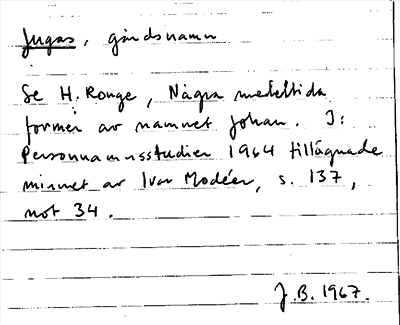 Jugas, gårdsnamn
Se H. Ronge, Några medeltida
former av namnet Johan. I:
Personnamnsstudier 1964 tillägnade
minnet av Ivar Modéer, s. 137,
not 34.
J.B. 1967.